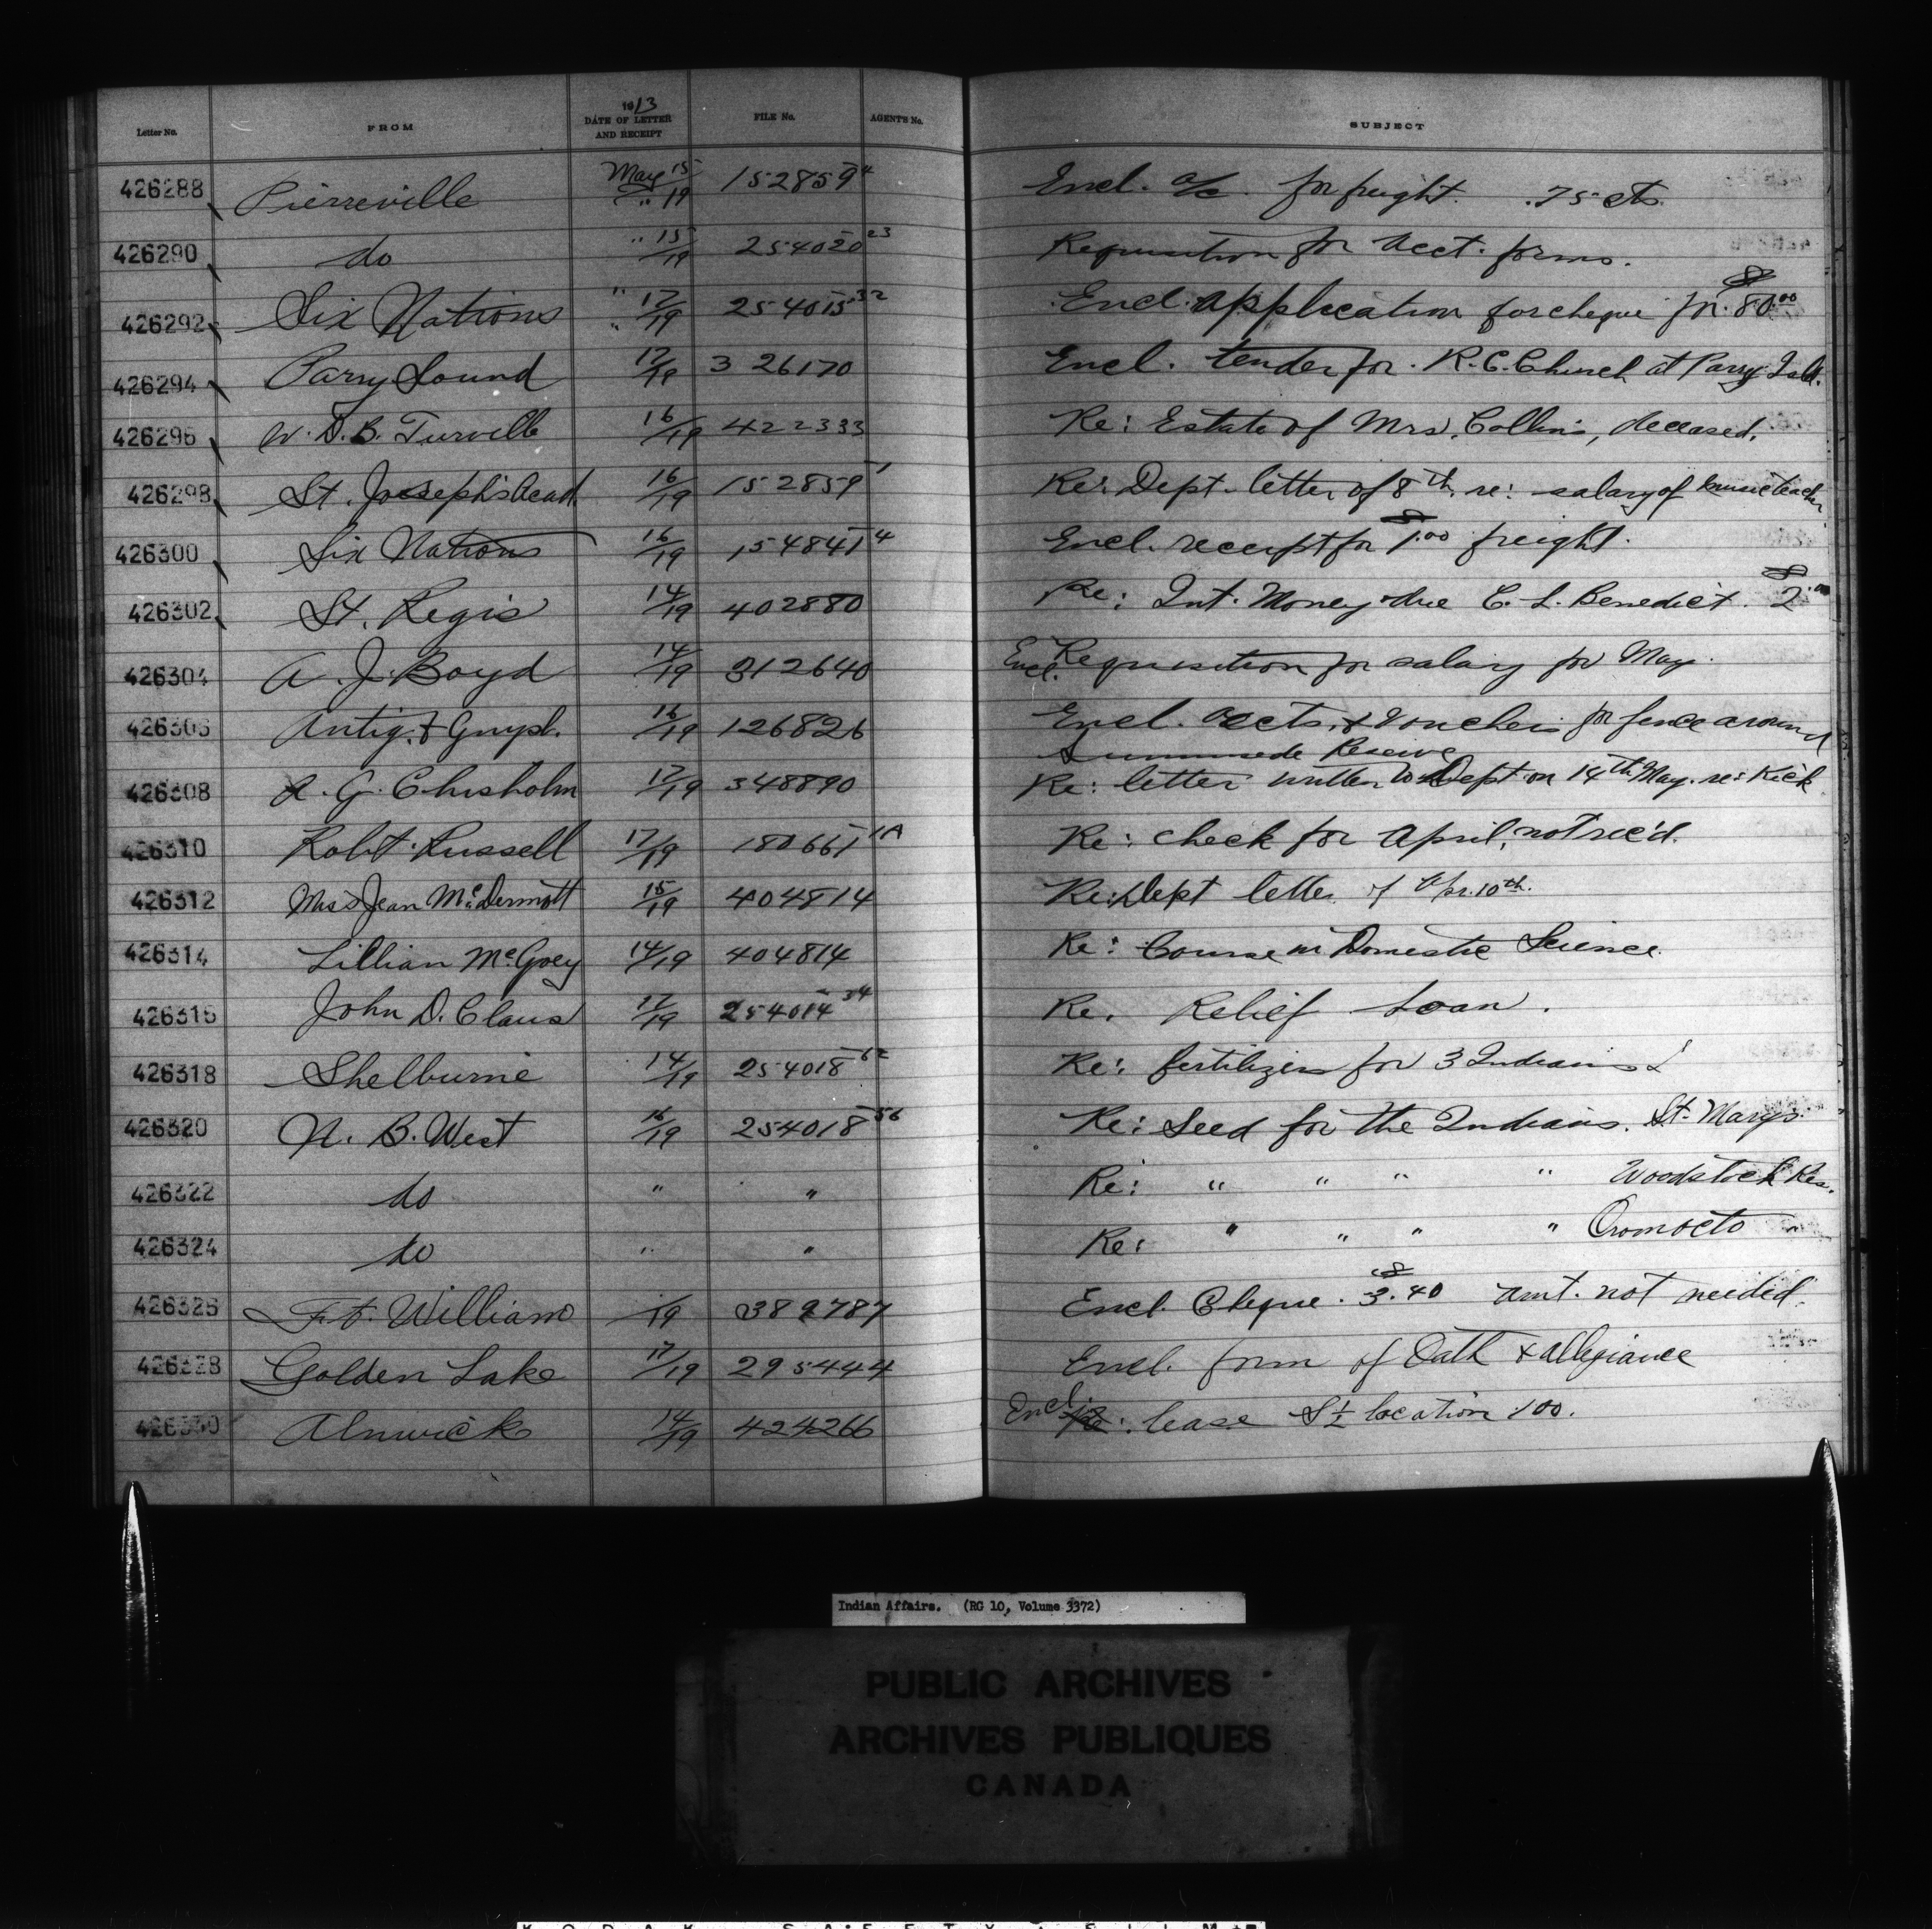 Letter No. FROM 1913 DATE OF LETTER AND RECEIPT FILE No. AGENTS No. SUBJECT
426288 Pierreville May 15/19 152859-4 Encl. a/c. for freight. .75 cts.
426290 do " 15/19 254020-23 Requisition for Acct. forms.
426292 Six Nations " 17/19 254015-32 Encl. application for cheque for $80.00
426294 Parry Sound 17/19 326170 Encl. tender for R.C. Church at Parry Isld.
426296 W. D. B. Turville 16/19 422333 Re: Estate of Mrs. Collins, deceased.
426298 St. Joseph's Acad. 16/19 152859-1 Re: Dept. letter of 8th. re: salary of music teacher
426300 Six Nations 16/19 154841-4 Encl. receipt for $1.00 freight.
426302 St. Regis 14/19 402880 Re: Int. Money due C. L. Benedict. $2.00
426304 A. J. Boyd 14/19 312640 Encl. Requisition for salary for May.
426306 Antig. & Guysb. 16/19 126826 Encl. accts. & vouchers for fence around
Summerside Reserve
426308 A. G. Chisholm 17/19 348890 Re: letter written to Dept. on 14th May. re: Kick
426310 Robt. Russell 17/19 180661-1A Re: check for April, not rec'd.
426312 Miss Jean McDermott 15/19 404814 Re: Dept letter of Apr. 10th.
426314 Lillian McGoey 14/19 404814 Re: Course in Domestic Science.
426316 John D. Claus 17/19 254014-34 Re. Relief Loan.
426318 Shelburne 14/19 254018-62 Re: fertilizer for 3 Indians
426320 N. B. West 16/19 254018-56 Re: Seed for the Indians. St. Marys.
426322 do " " Re: " " " " Woodstock Res.
426324 do " " Re: " " " " Oromocto
426326 Ft. William /19 389787 Encl. Cheque. $3.40 amt. not needed.
426328 Golden Lake 17/19 295444 Encl. form of Oath & allegiance
426330 Alnwick 14/19 424266 Encl. Re: lease S½ location 100.
Indian Affairs. (RG 10, Volume 3372)
PUBLIC ARCHIVES
ARCHIVES PUBLIQUES
CANADA
KODAK SAFETY FILM